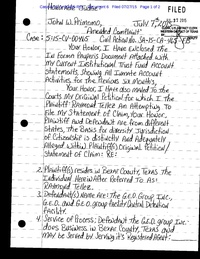 Honorable Judge:
John W. Primomo,
Amended Complaint.
Case: 5:15-CV-00465 Civil Action No. SA-15-CA-465
Your Honor, I Have Enclosed The
In Forma Pauperis Document Attached With
My Current Institutional Trust Fund Account
Statements, Showing All Inmate Account
Activities For the Previous Six Months,
Your Honor, I Have also mailed to the
Courts My Original Petition for Which I The
Plaintiff Raymond Tellez Am Attempting To
File My Statement of Claim, Your Honor,
Plaintiff and Defendant Are from different
States, The Basis for diversity Jurisdiction
of Citizenship is distinctly And Adequately
Alleged Within Plaintiff(s) Original Petition/
Statement of Claim: RE:
2. Plaintiff(s) resides in Bexar County, Texas The
Individual Hereinafter Referred To As:
Raymond Tellez.
3. Defendant(s) Name Are: The G.E.O. Group Inc.,
G.E.O. and G.E.O. group
Facility.
4. Service of Process: Defendant the G.E.O. group Inc.
does Business in Bexar County, Texas and
May be Served by Serving it's Registered Agent:
FILED